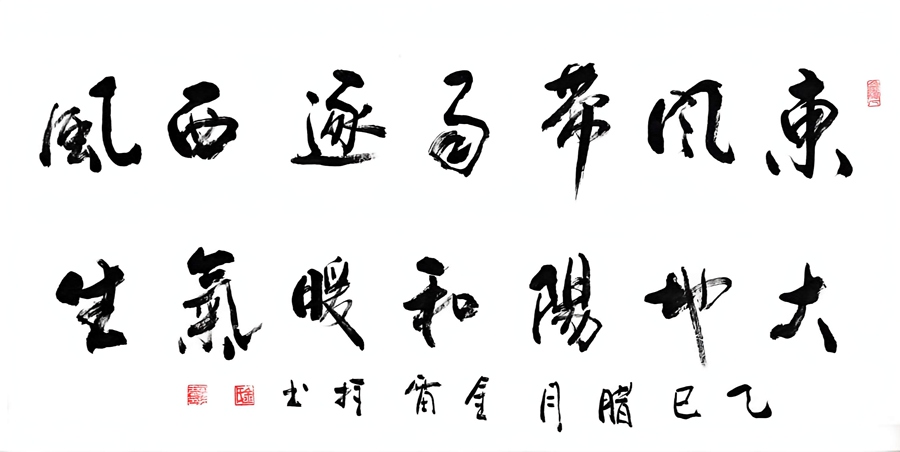 東风帶雨逐西風
大地陽和暖氣生
乙巳臘月金雷书